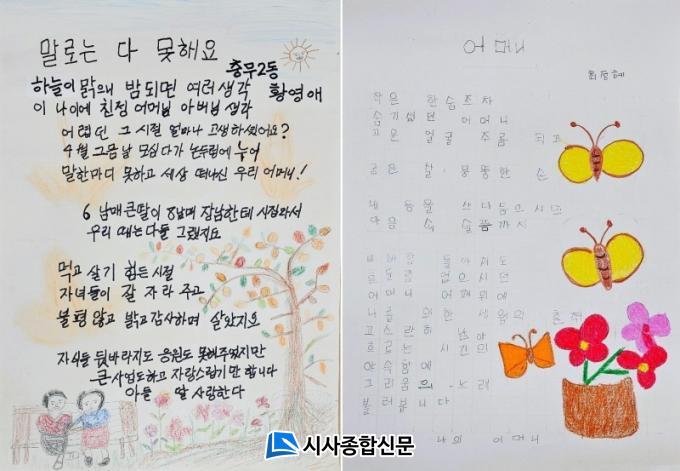 말로는 다 못해요
충무2동
황영애
하늘이 맑으니 밤되면 여러생각
이 나이에 친정 어머님 아버님 생각
어렵던 그 시절 얼마나 고생하셨어요?
4월 그믐날 모심다가 논두렁에 누어
말한마디 못하고 세상 떠나신 우리 어머니!
6 남매 큰딸이 8남매 장남한테 시집와서
우리 때는 다들 그랬지요
먹고 살기 힘든 시절
자녀들이 잘 자라 주고
불평 않고 밝고 감사하며 살았지요
자식들 뒷바라지도 응원도 못해주었지만
큰사업도하고 자랑스럽기만 합니다
아들 딸 사랑한다
어머니
작은 한숨조차
숨기셨던 어머니
고운 얼굴 주름 되고
굽은 손
쓰다듬으시던
마음 속 슬픔까지
어머니
세월의 흔적
고스란히 남아
흐르는 시간의
야속함에
그리움의 노래
불러봅니다
나의 어머니
시사종합신문